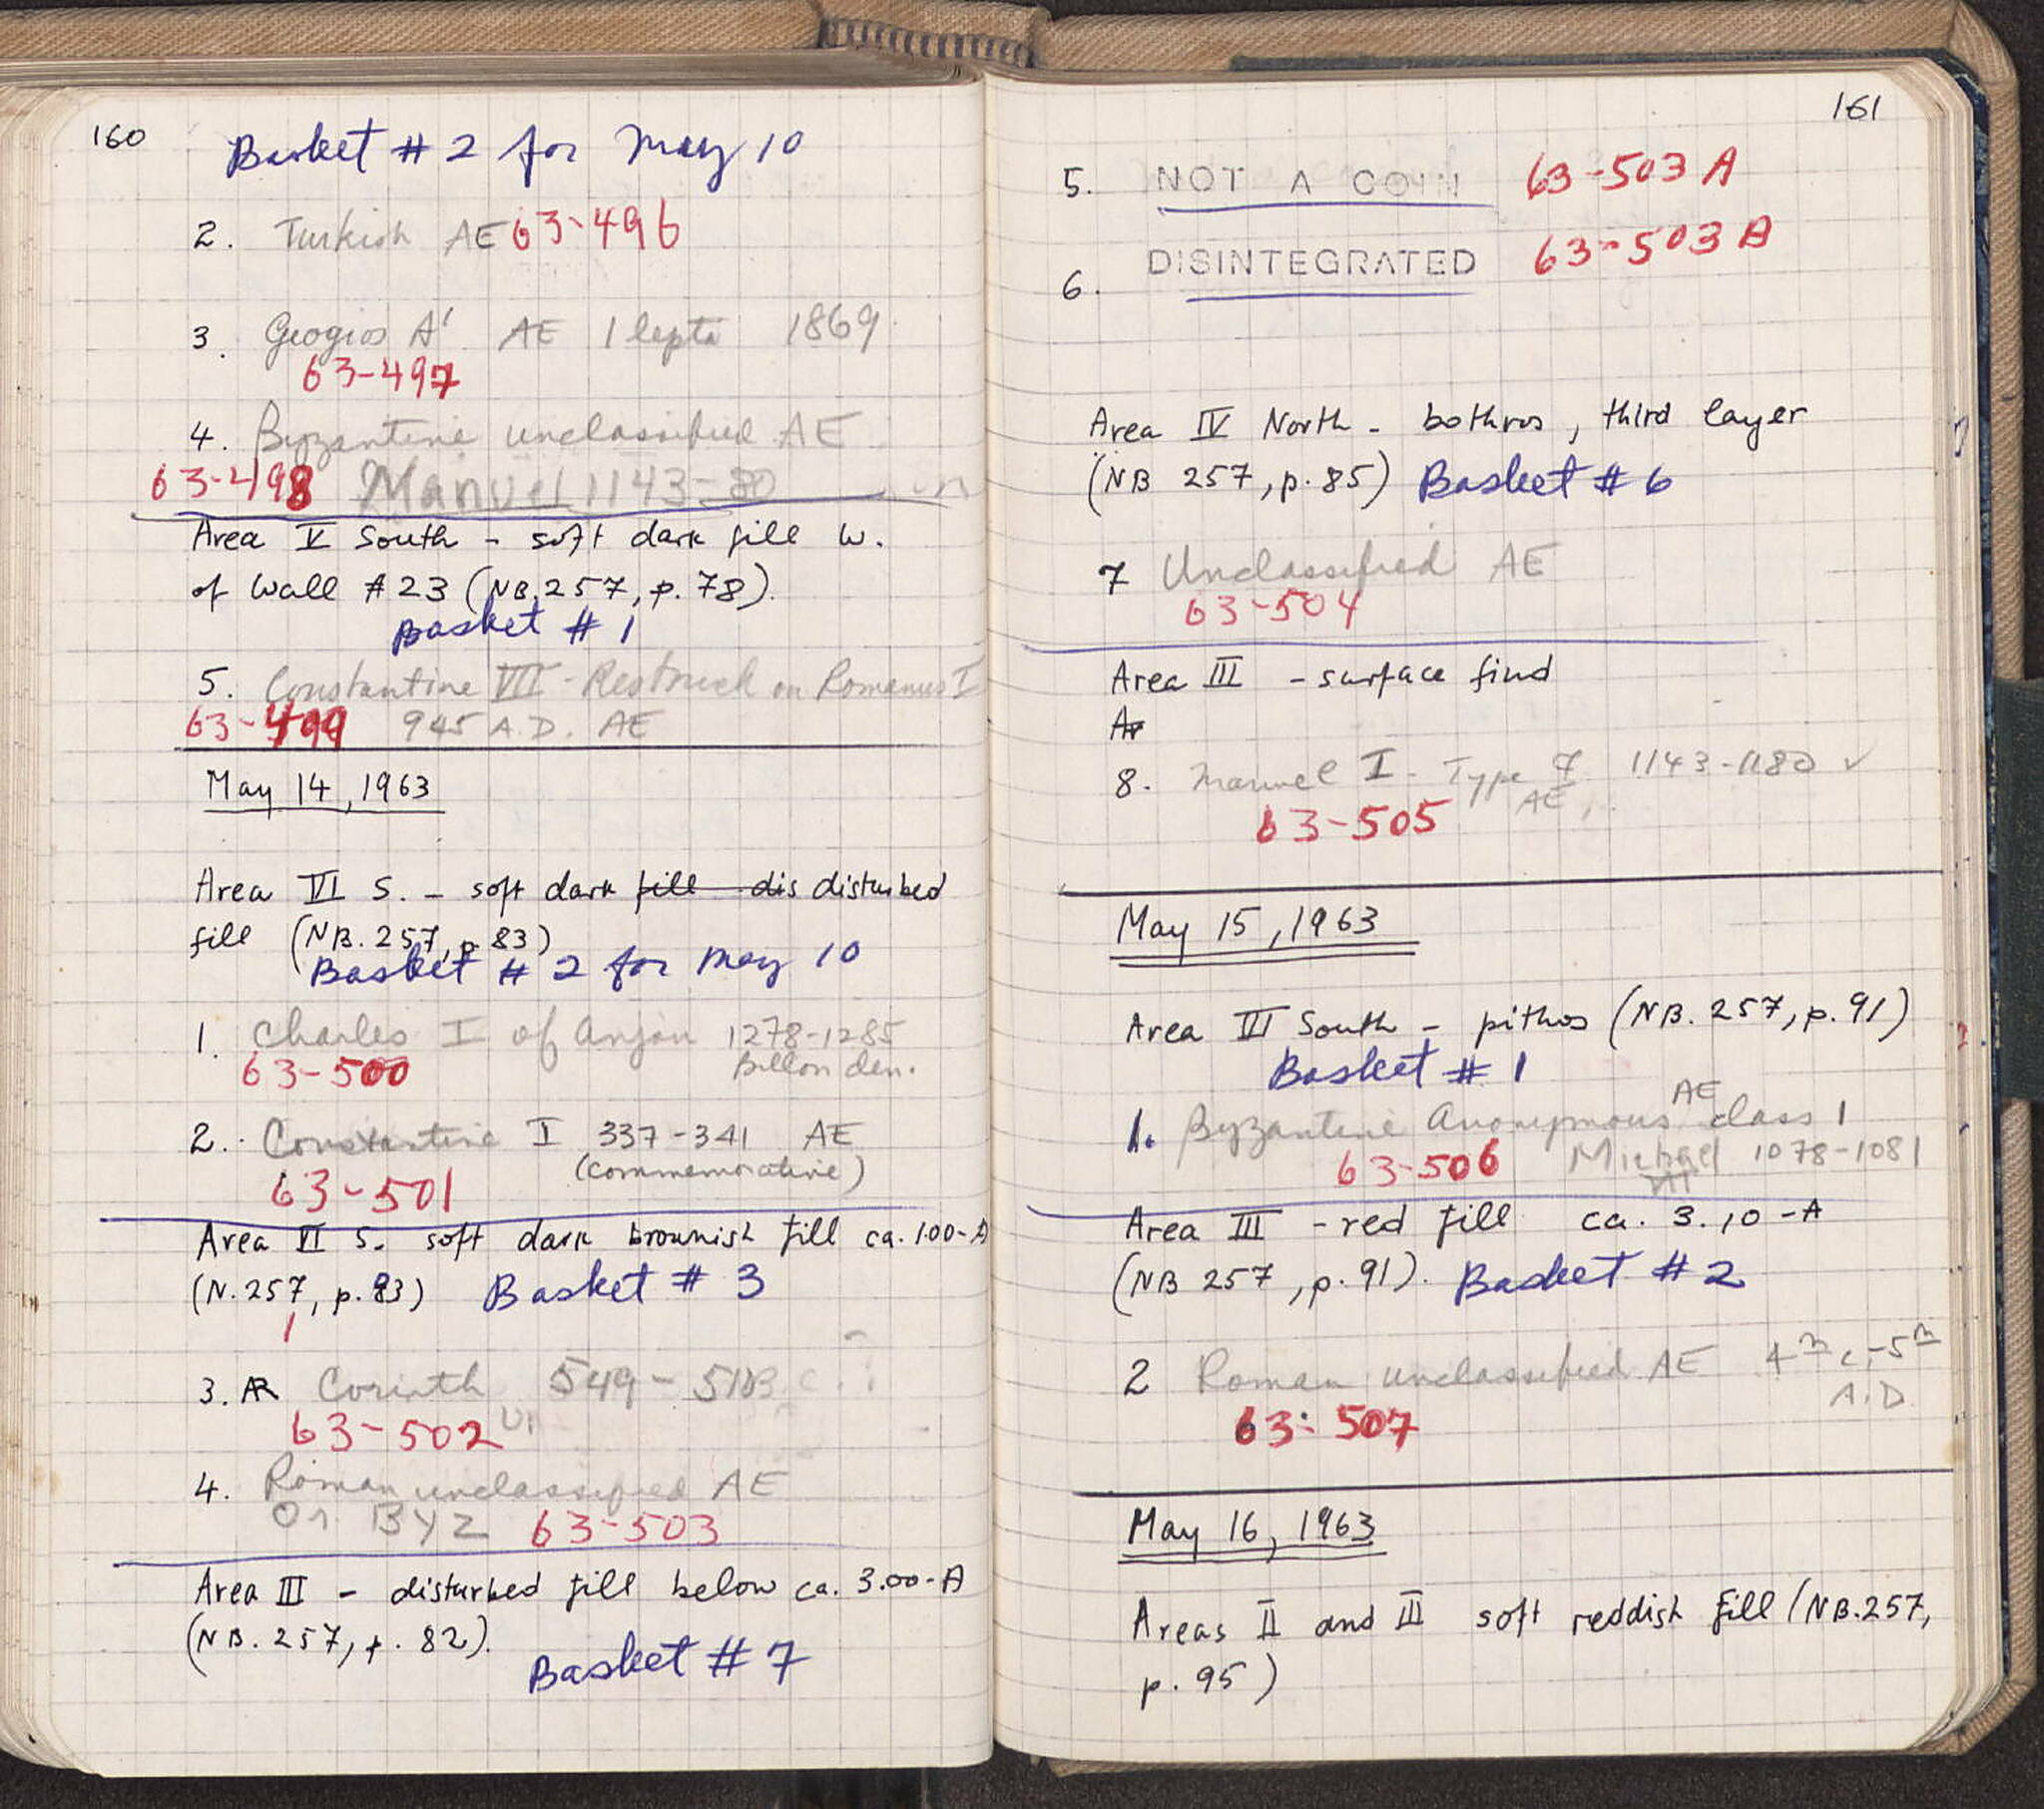 160
Basket # 2 for May 10
2. Turkish AE 63-496
3. Geogios A' AE 1 lepta 1869
63-497
4. Byzantine unclassified AE
63-498 Manuel 1143-80
Area V South - soft dark fill W.
of Wall #23 (NB.257, p. 78).
Basket # 1
5. Constantine VII - Restruck on Romanus I
63-499 945 A.D. AE
May 14, 1963
Area VI S. - soft dark fill dis disturbed
fill (NB. 257, p. 83)
Basket # 2 for May 10
1. Charles I of Anjou 1278-1285
63-500 Billon den.
2. Constantine I 337-341 AE
(commemorative)
63-501
Area VI S. soft dark brownish fill ca. 1.00-A
(N. 257, p. 83) Basket # 3
3. AR Corinth 549-510B.C.
63-502
4. Roman unclassified AE
or BYZ 63-503
Area III - disturbed fill below ca. 3.00-A
(NB. 257, p. 82).
Basket # 7
161
5. NOT A COIN 63-503 A
6. DISINTEGRATED 63-503 B
Area IV North - bothros, third layer
(NB 257, p. 85) Basket # 6
7 Unclassified AE
63-504
Area III - surface find
Ar
8. Manuel I - Type 7 1143-1180 ✓
AE
63-505
May 15, 1963
Area III South - pithos (NB. 257, p. 91)
Basket # 1
1. Byzantine Anonymous AE class I
63-506 Michael VII 1078-1081
Area III - red fill ca. 3.10-A
(NB 257, p. 91). Basket # 2
2 Roman unclassified AE 4th c.-5th
A.D.
63-507
May 16, 1963
Areas II and III soft reddish fill (NB.257,
p. 95)